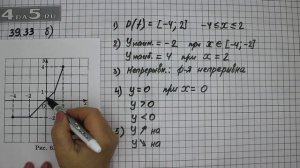 4ДА5.РУ
39.33 б)
1) D(f) = [-4; 2] -4 ≤ x ≤ 2
2) Yнаим. = -2 при x ∈ [-4; -2]
Yнаиб. = 4 при x = 2
3) Непрерывн.: ф-я непрерывна
4) y = 0 при x = 0
y > 0
y < 0
5) y ↗ на
y ↘ на
Рис. 6